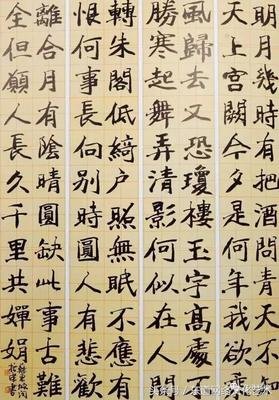 明月幾時有把酒問青天不知
天上宮闕今夕是何年我欲乘
風歸去又恐瓊樓玉宇高處不
勝寒起舞弄清影何似在人間
轉朱閣低綺戶照無眠不應有
恨何事長向別時圓人有悲歡
離合月有陰晴圓缺此事古難
全但願人長久千里共嬋娟
蘇東坡詞